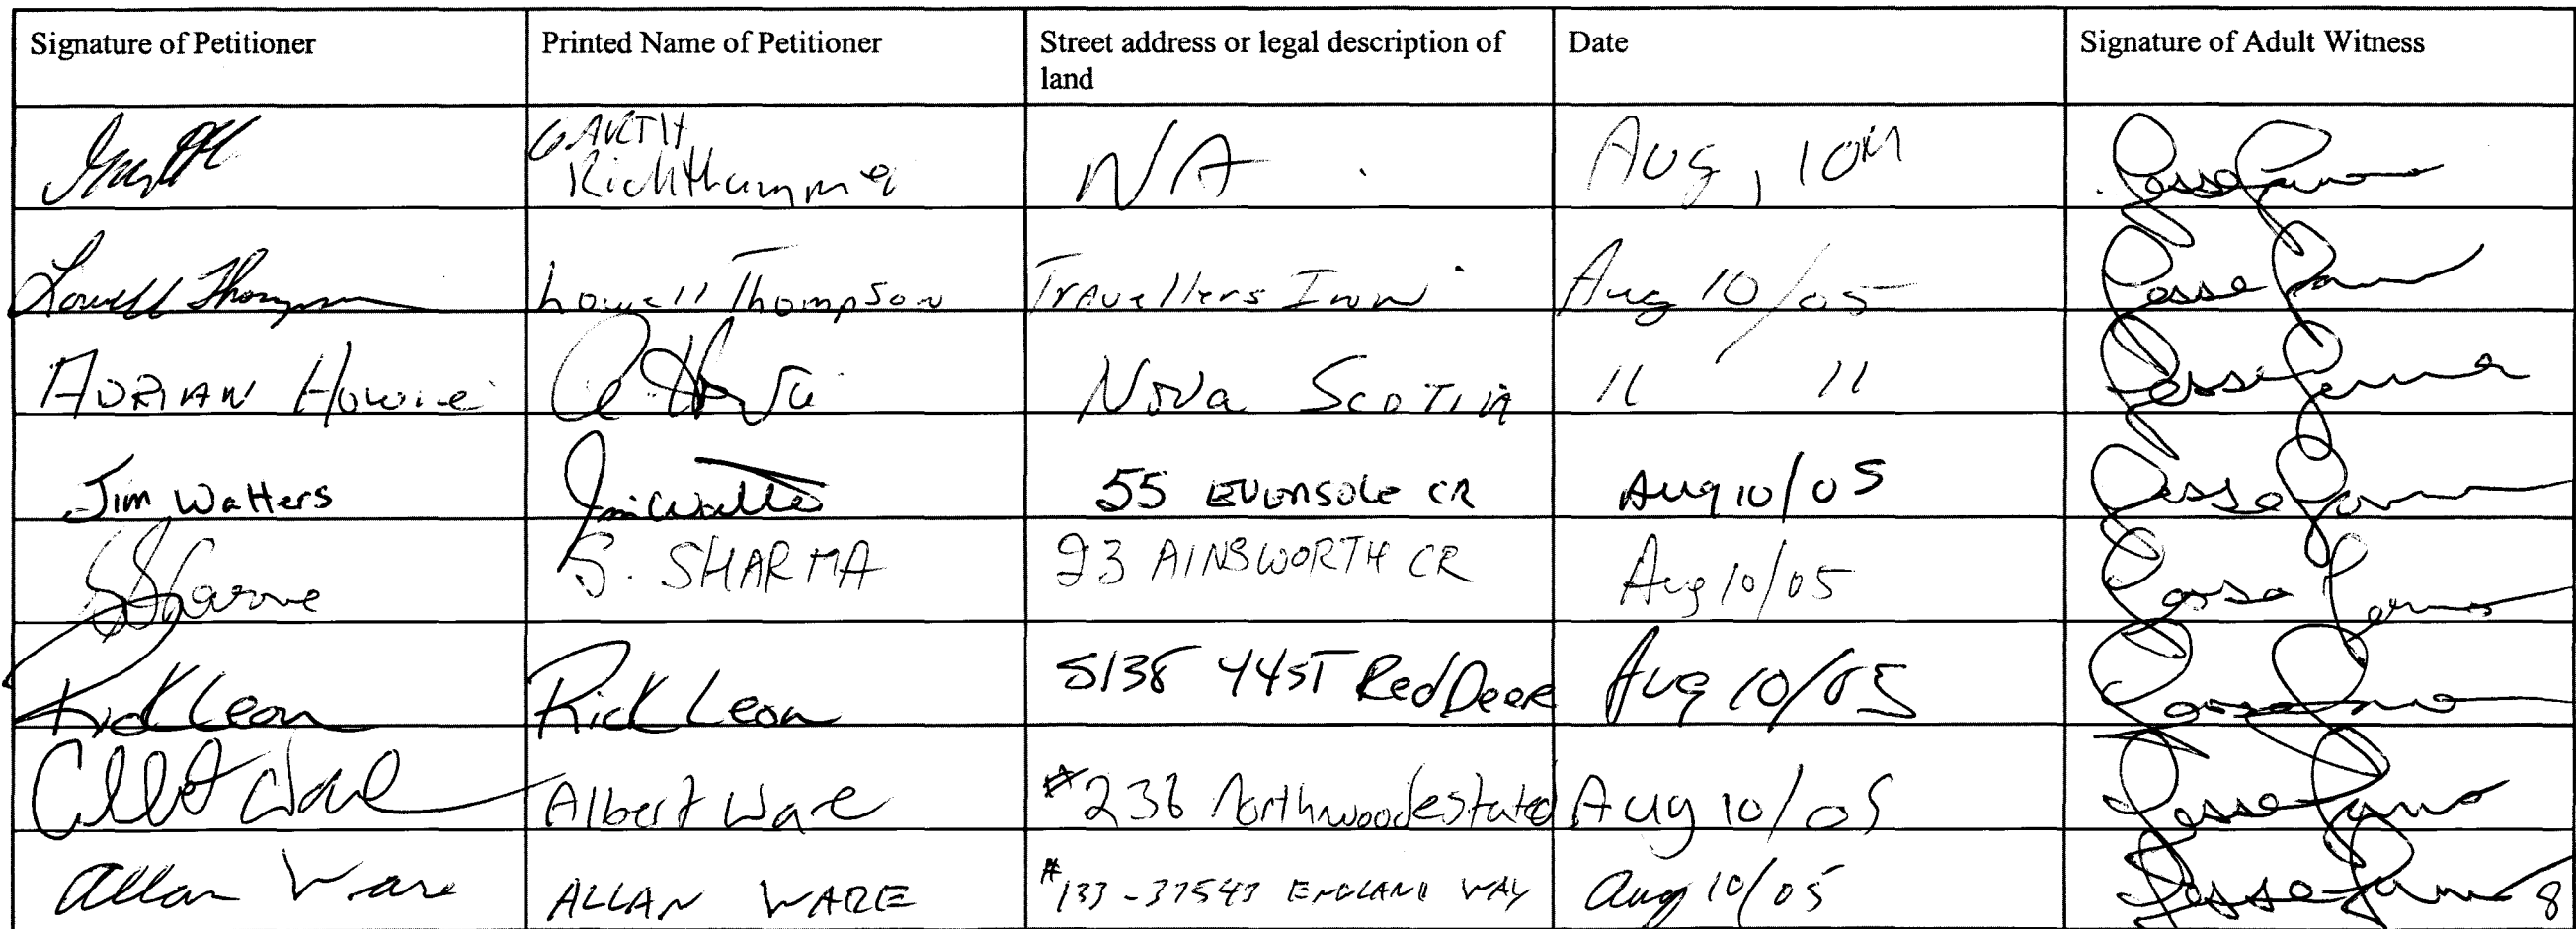 Signature of Petitioner Printed Name of Petitioner Street address or legal description of Date Signature of Adult Witness
land
GARTH
N/A Aug, 10th
Lowell Thompson Lowell Thompson Travellers Inn Aug 10/05 Jesse
ADRIAN Howie Nova Scotia 11 11 Jesse
Jim Watters Jim Watters 55 CR Aug 10/05 Jesse
S Sharma S. SHARMA 23 AINSWORTH CR Aug 10/05 Jesse
Rick Leon Rick Leon 5138 44ST Red Deer Aug 10/05 Jesse
Albert Ware Albert Ware #236 Northwood estates Aug 10/05 Jesse
Allan Ware ALLAN WARE #133-37543 ENGLAND WAY Aug 10/05 Jesse
8